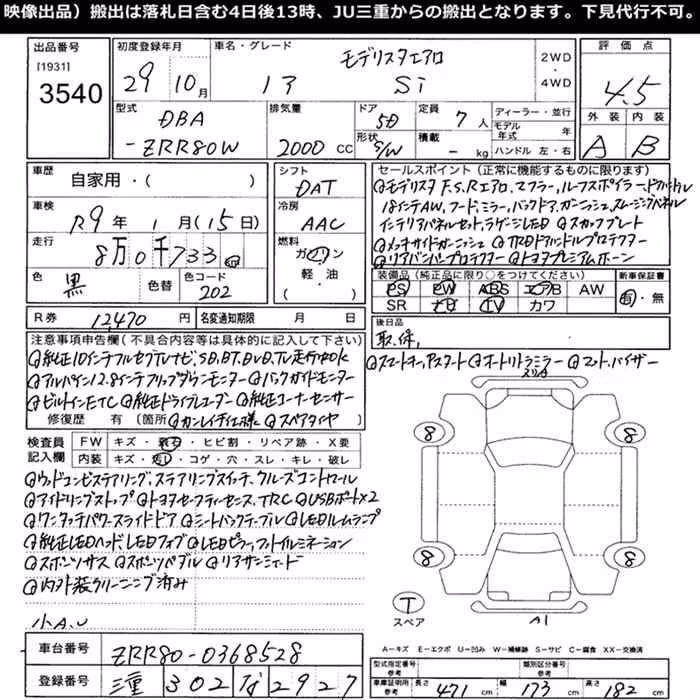 映像出品）搬出は落札日含む4日後13時、JU三重からの搬出となります。下見代行不可。
出品番号
[1931]
3540
初度登録年月
29年 10月
車名・グレード
モデリスタエアロ
13 Si
2WD
・
4WD
評価点
4.5
外装 内装
A B
型式
DBA
-ZRR80W
排気量
2000 CC
ドア
5D
形状
S/W
定員
7人
積載
- kg
ディーラー・並行
モデル年式 年
ハンドル 左・右
車歴
自家用・( )
車検
R9年 1月(15日)
走行
8万0千733km
色
黒
色替
色コード
202
シフト
DAT
冷房
AAC
燃料
ガソリン
軽・油
( )
セールスポイント (正常に機能するものに限ります)
◎モデリスタF.S.Rエアロ、マフラー、ルーフスポイラー、ドアハンドル
18インチAW、フード、ミラー、バックドア、ガーニッシュ、スムージングパネル
インテリアパネルセット、ラゲージLED ◎スカッフプレート
◎メッキサイドガーニッシュ ◎TRDドアハンドルプロテクター
◎リアバンパープロテクター ◎トヨタプレミアムホーン
装備品 (純正品に限り○をつけてください)
PS PW ABS エアB AW
SR ナビ TV カワ
新車保証書
有・無
R券 12,470円
名変通知期限 月 日
後日品
取、保、
注意事項申告欄(不具合内容等は具体的に記入して下さい)
◎純正10インチフルセグTVナビ、SD、BT、DVD、TV走行中OK
◎アルパイン12.8インチフリップダウンモニター ◎バックガイドモニター
◎ビルトインETC ◎純正ドライブレコーダー ◎純正コーナーセンサー
修復歴 有 (箇所 ◎カンレイチ仕様 ◎スペアタイヤ )
◎スマートキー、Pスタート ◎オートリトラミラー ◎マット、バイザー
スリキ
検査員
記入欄
FW キズ・飛石・ヒビ割・リペア跡・X要
内装 キズ・汚レ・コゲ・穴・スレ・キレ・破レ
◎ウッドコンビステアリング、ステアリングスイッチ、クルーズコントロール
◎アイドリングストップ ◎トヨタセーフティーセンス、TRC ◎USBポート×2
◎ワンタッチパワースライドドア ◎シートバックテーブル ◎LEDルームランプ
◎純正LEDヘッド、LEDフォグ ◎LEDピラー、フットイルミネーション
◎スポーツサス ◎スポーツペダル ◎リアサンシェード
◎内外装クリーニング済み
小A.U
8 8
8 8
T
スペア
A1
A－キズ E－エクボ U－凹み W－補修跡 S－サビ C－腐食 XX－交換済
車台番号
ZRR80-0368528
登録番号
三重 302 な 2927
型式指定番号
参考
類別区分番号
参考
車庫証明用
参考
長さ 471cm 幅 173cm 高さ 182cm